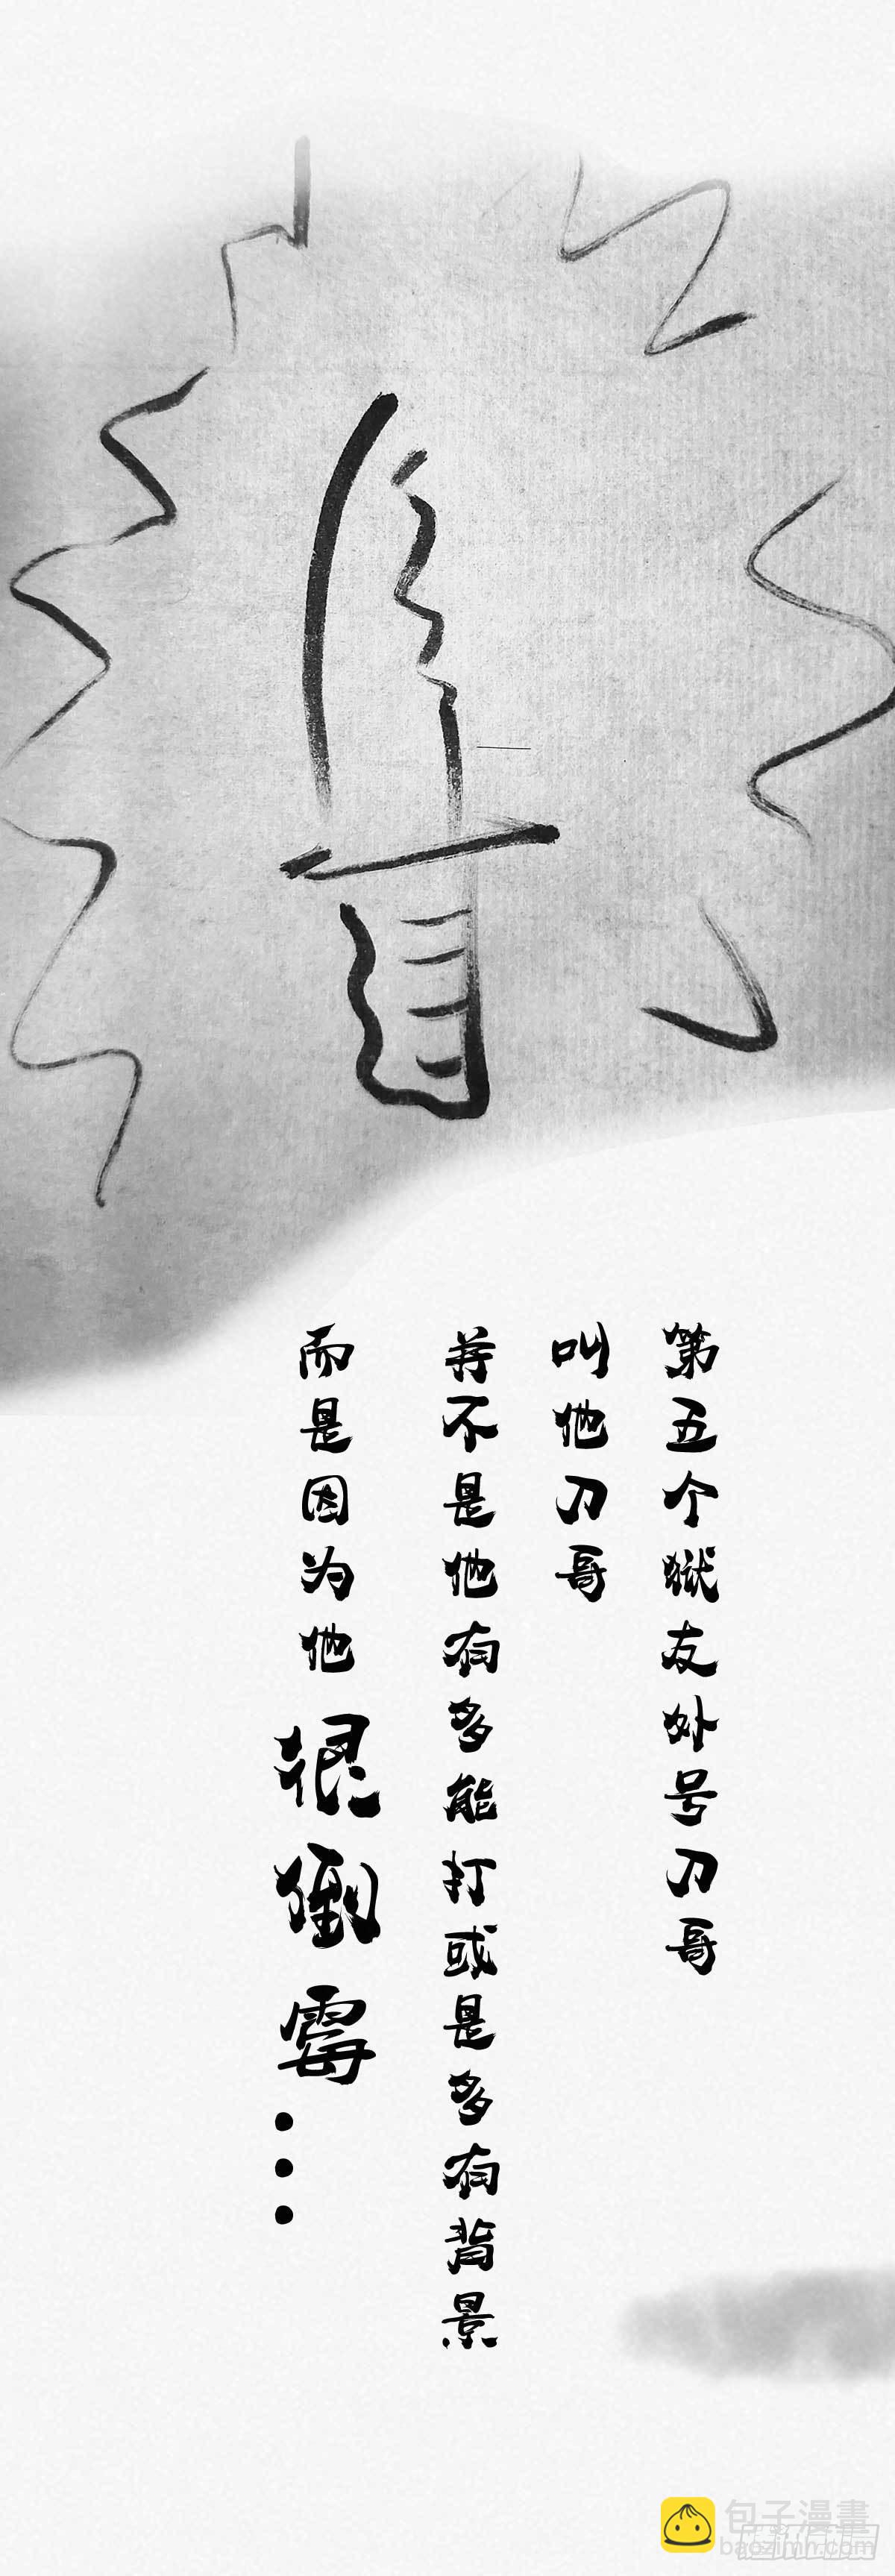 第五个狱友外号刀哥
叫他刀哥
并不是他有多能打或是多有背景
而是因为他很倒霉...
包子漫畫
baozimh.com